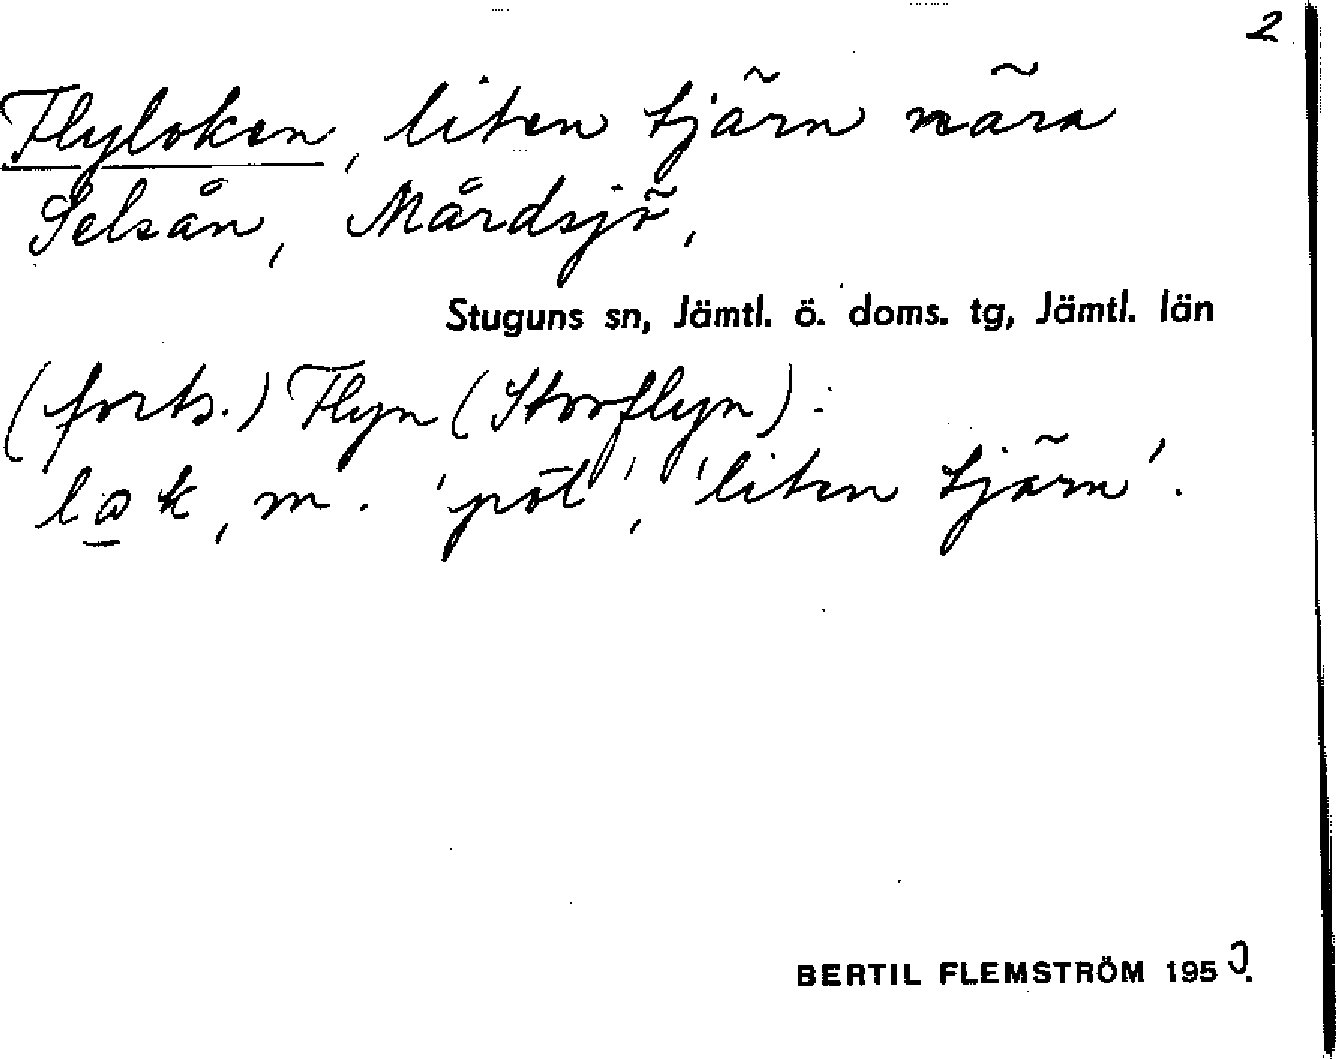 2
Flyloken, liten tjärn nära
Selsån, Mårdsjö,
Stuguns sn, Jämtl. ö. doms. tg, Jämtl. län
(forts.) Flyn (Storflyn).
lɷk, m. 'pöl', 'liten tjärn'.
BERTIL FLEMSTRÖM 195